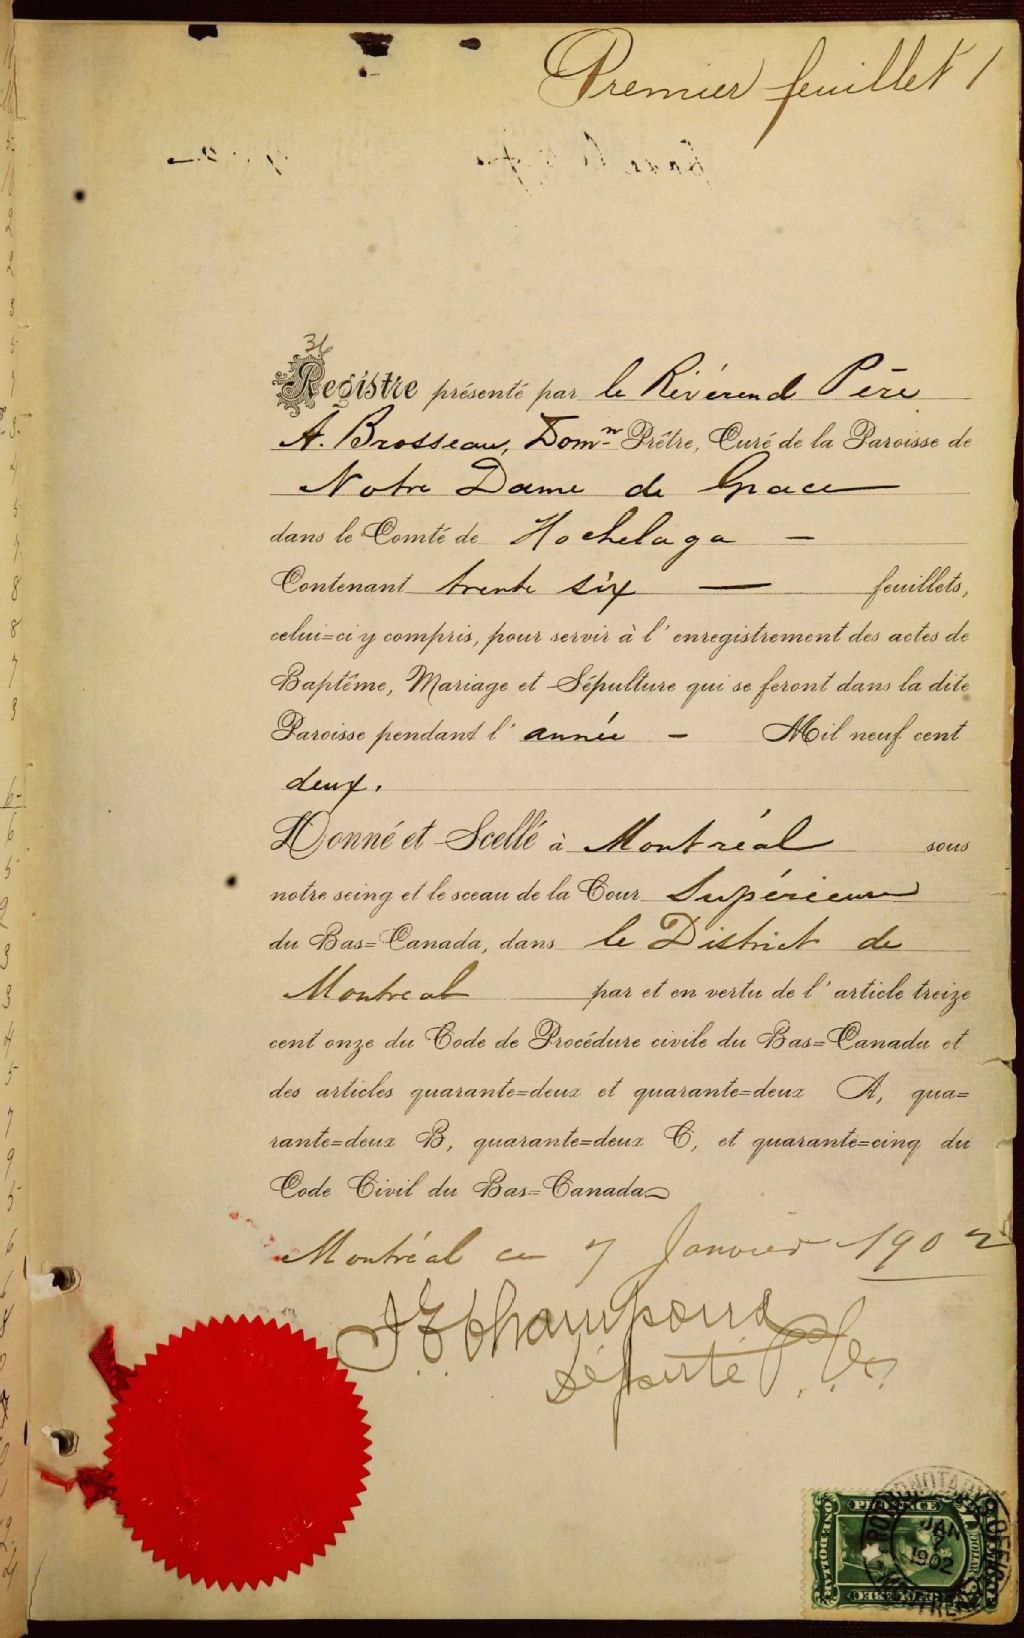 Premier feuillet 1
36
Registre présenté par le Révérend Père
A. Brosseau, Dom<sup>n</sup> Prêtre, Curé de la Paroisse de
Notre Dame de Grace
dans le Comté de Hochelaga —
Contenant trente six — feuillets,
celui=ci y compris, pour servir à l'enregistrement des actes de
Baptême, Mariage et Sépulture qui se feront dans la dite
Paroisse pendant l'année — Mil neuf cent
deux.
Donné et Scellé à Montréal sous
notre seing et le sceau de la Cour Supérieure
du Bas=Canada, dans le District de
Montreal par et en vertu de l'article treize
cent onze du Code de Procédure civile du Bas=Canada et
des articles quarante=deux et quarante=deux A, qua=
rante=deux B, quarante=deux C, et quarante=cinq du
Code Civil du Bas=Canada
Montréal ce 7 Janvier 1902
Député
PROVINCE
JAN
7
1902
ONE DOLLAR